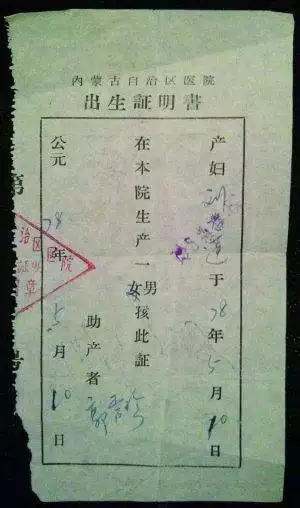 内蒙古自治区医院
出生証明書
产妇刘于78年5月10日
在本院生产一女男孩此証
助产者郭
公元78年5月10日
第
治区医院
証明
章